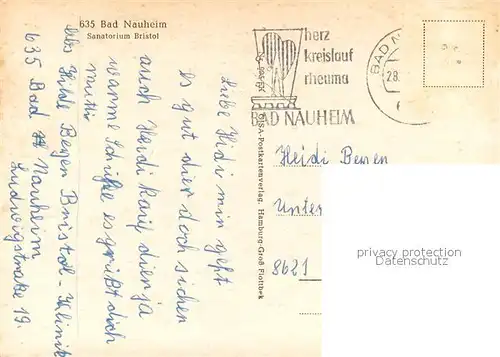 635 Bad Nauheim
Sanatorium Bristol
herz
kreislauf
rheuma
BAD NAUHEIM
BAD N
28.
6
Liebe Heidi mir geht
es gut dier doch sicher
auch Heidi kauf dier ja
warme Schuhe es grüßt dich
mutti
Hilde Beyen Bristol-Klinik
635 Bad Nauheim
Ludwigstraße 19.
GISA-Postkartenverlag, Hamburg-Groß Flottbek
Heidi Beyen
Unter
8621
privacy protection
Datenschutz